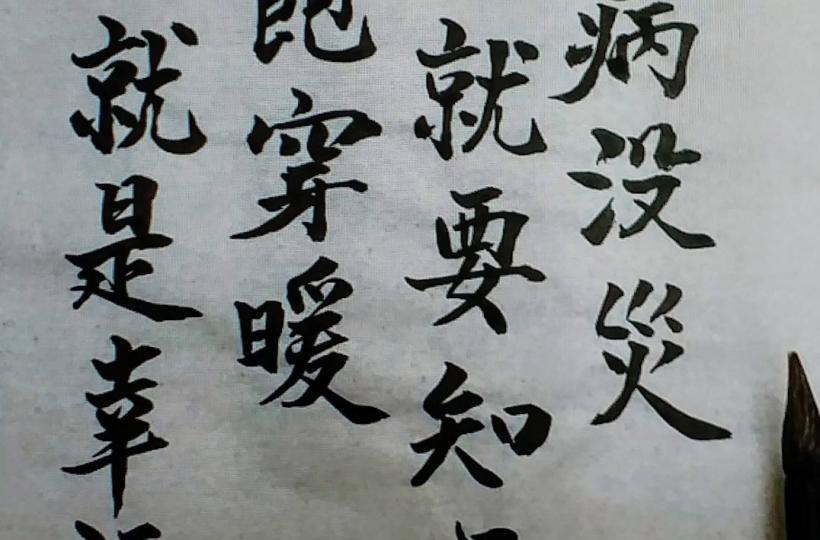 病没災
就要知
飽穿暖
就是幸